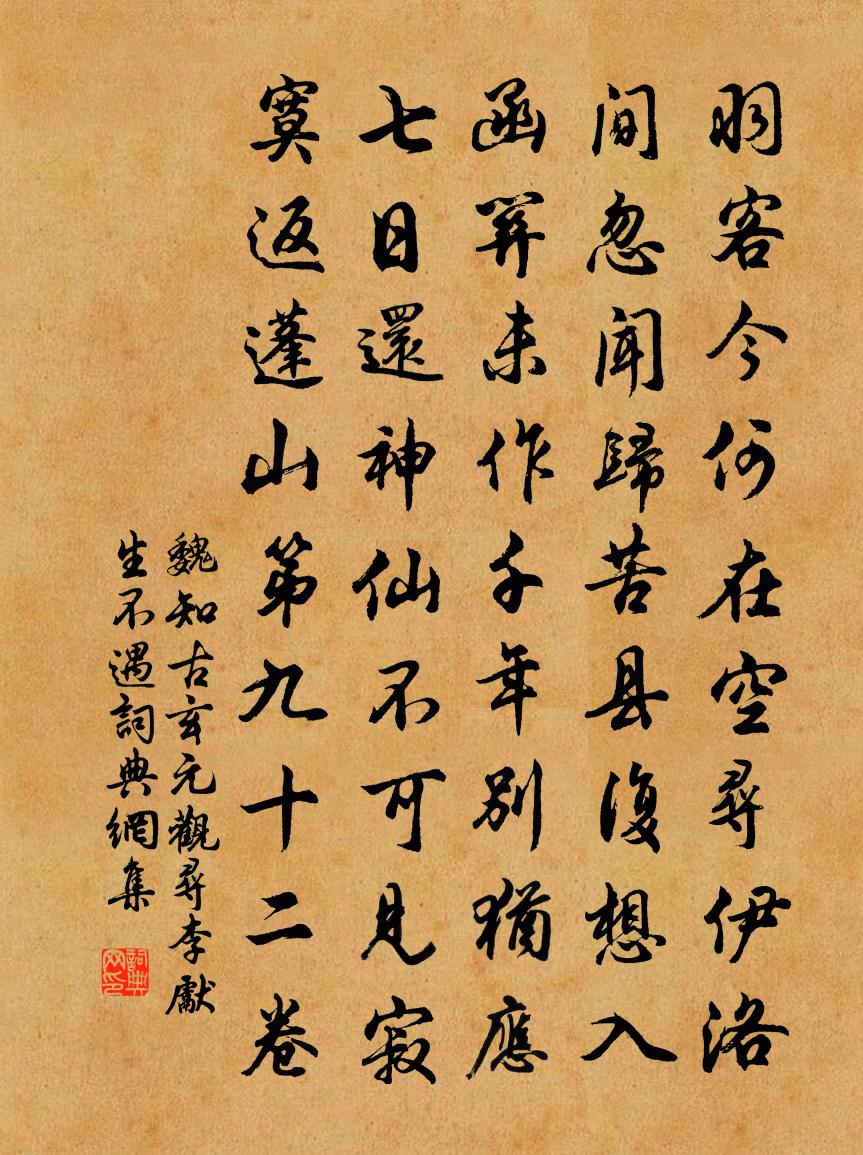 羽客今何在空尋伊洛
間忽聞歸苦县復想入
函關未作千年別猶應
七日還神仙不可見寂
寞返蓬山第九十二卷
魏知古玄元觀尋李獻
生不遇詞典網集
詞典网印